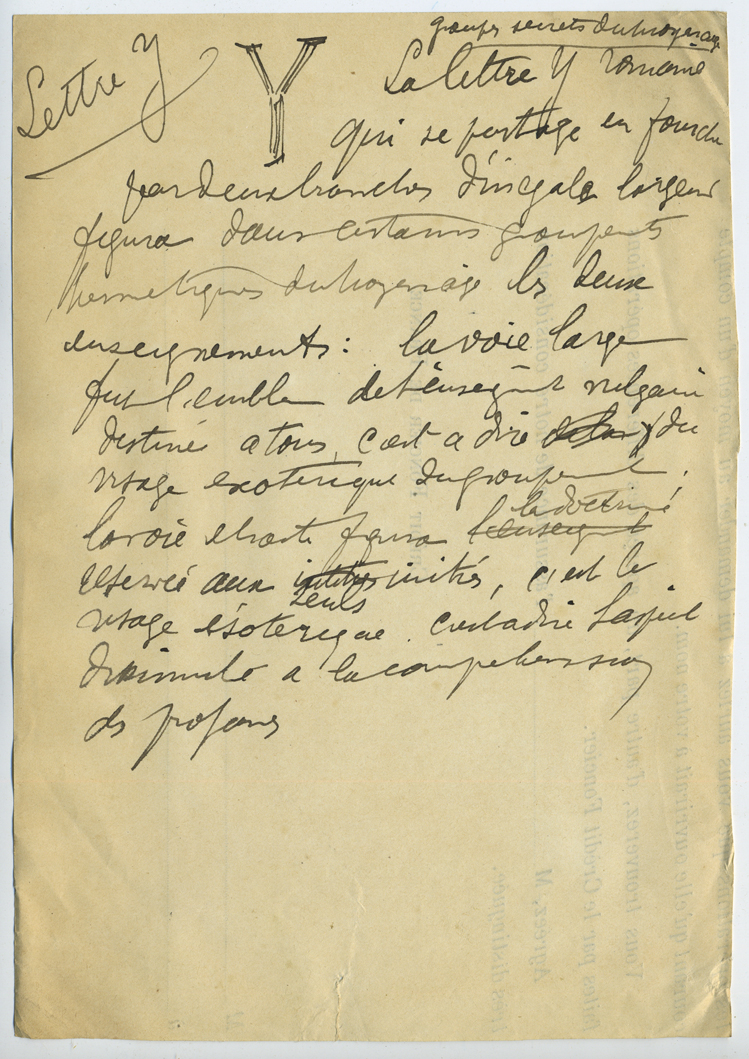 groupes secrets du moyen age
Lettre Y
Y
La lettre Y romaine
qui se partage en fourche
par deux branches d'inégale largeur
figura dans certains groupents
hermetiques du moyen age les deux
enseignements : la voie large
fut l'emblem de l'enseignt vulgaire
destiné a tous, c'est a dire du
visage exoterique du groupement.
la voie etroite figura l'enseignt la doctrine
réservée aux initiés, c'est le
seuls
visage ésoterique. c'est a dire l'aspect
dissimulé a la comprehension
des profanes